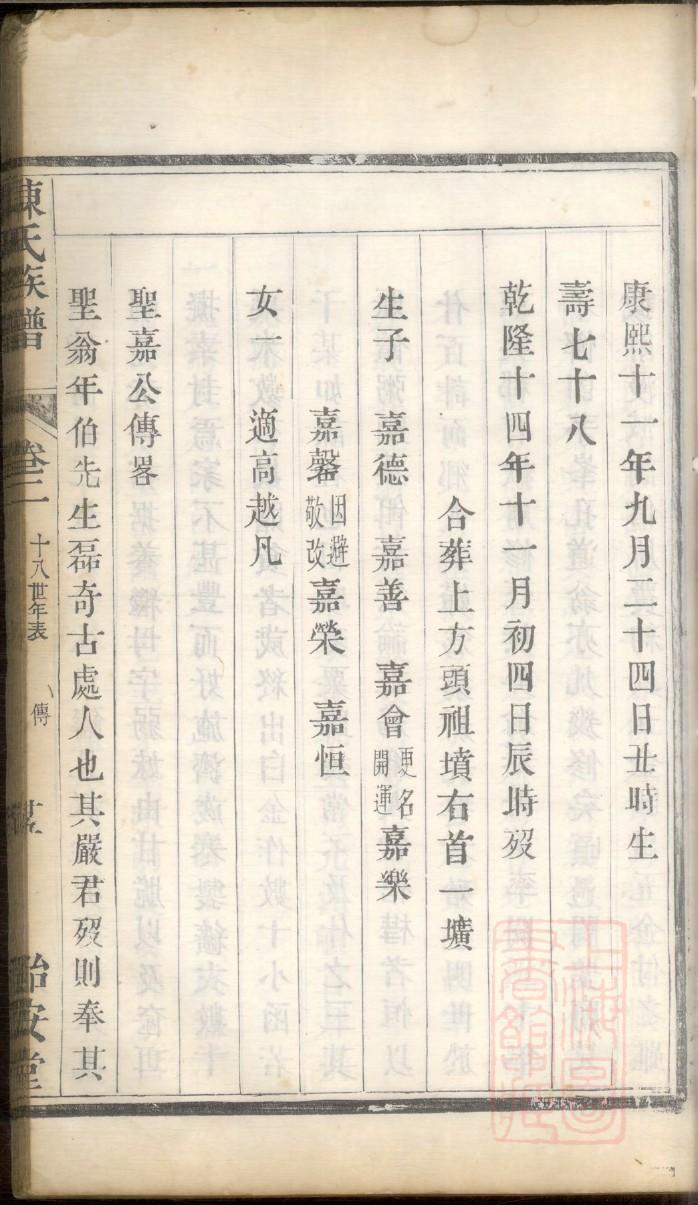 康熙十一年九月二十四日丑時生
壽七十八
乾隆十四年十一月初四日辰時歿
合葬上方頭祖墳右首一壙
生子 嘉德 嘉善 嘉會更名開運 嘉樂
嘉馨因避敬改 嘉榮 嘉恒
女一 適高越凡
聖嘉公傳畧
聖翁年伯先生磊奇古處人也其嚴君歿則奉其
陳氏族譜 卷二 十八世年表 傳 怡安堂